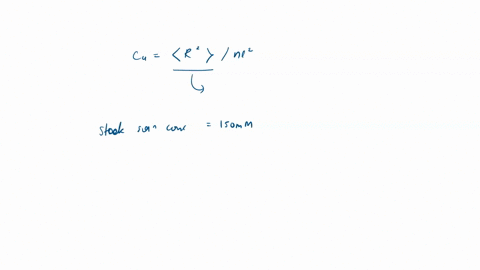 Cu = ⟨R²⟩ / nl²
Stock solⁿ conc = 150mM